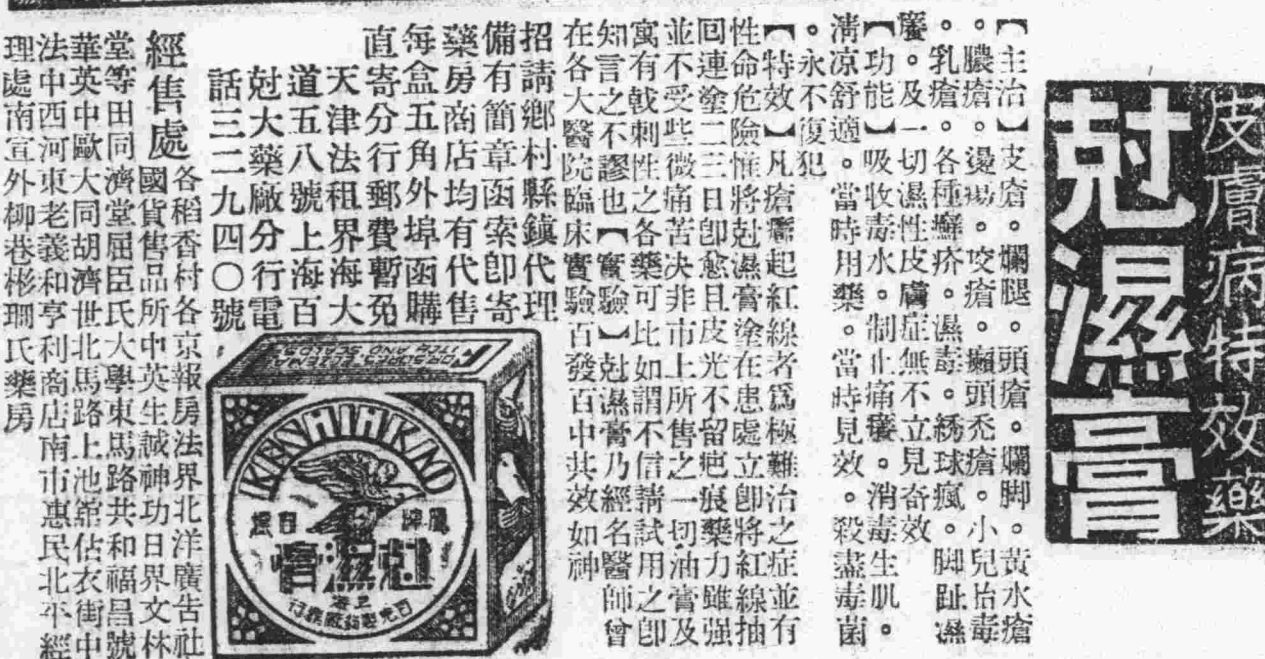 皮膚病特效藥
尅濕膏
【主治】皮瘡。爛腿。頭瘡。爛脚。黃水瘡
。膿瘡。燙瘍。咬瘡。癩頭禿瘡。小兒胎毒
。乳瘡。各種癬疥。濕毒。綉球瘋。脚趾濕
癢。及一切濕性皮膚症無不立見奇效
【功能】吸收毒水。制止痛癢。消毒生肌。
淸凉舒適。當時用藥。當時見效。殺盡毒菌
。永不復犯
【特效】凡瘡癰起紅線者爲極難治之症並有
性命危險惟將尅濕膏塗在患處立卽將紅線抽
回連塗二三日卽愈且皮光不留疤痕藥力雖强
並不受些微痛苦决非市上所售之一切油膏及
寓有戟刺性之各藥可比如謂不信請試用之卽
知言之不謬也【實驗】尅濕膏乃經名醫師曾
在各大醫院臨床實驗百發百中其效如神
招請鄕村縣鎮代理
備有簡章函索卽寄
藥房商店均有代售
每盒五角外埠函購
直寄分行郵費暫免
天津法租界海大
道五八號上海百
尅大藥廠分行電
話三二九四〇號
經售處各稻香村各京報房法界北洋廣告社
國貨售品所中英生誠神功日界文林
堂等田同濟堂屈臣氏大學東馬路共和福昌號
華英中歐大同胡濟世北馬路上池舘估衣街中
法中西河東老義和亨利商店南市惠民北平經
理處南宣外柳巷彬珊氏藥房
KESHIHKINO
鳳牌
尅濕膏